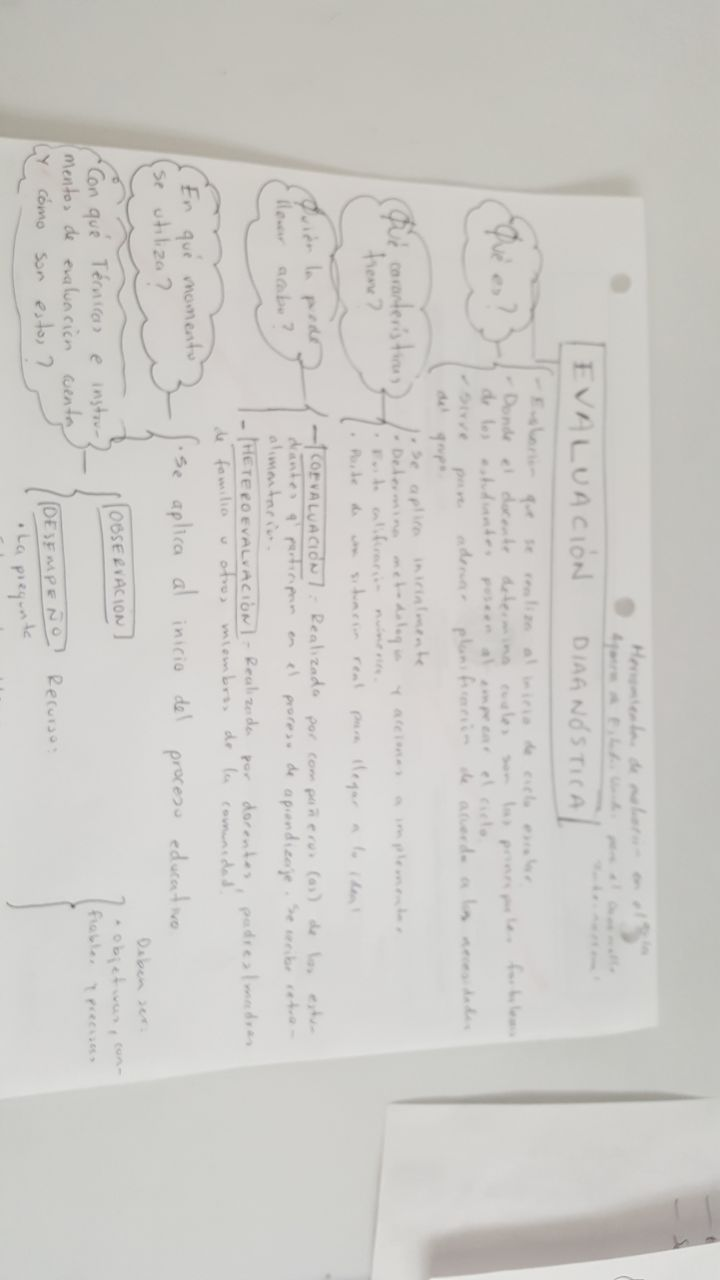 Herramientas de evaluación en el
EVALUACIÓN DIAGNÓSTICA
Qué es?
- Evaluación que se realiza al inicio de ciclo escolar
- Donde el docente determina cuales son las principales fortalezas
de los estudiantes poseen al empezar el ciclo.
- Sirve para adecuar planificación de acuerdo a las necesidades
del grupo.
Qué características
tiene?
• Se aplica inicialmente
• Determina metodología y acciones a implementar
• Evita calificación numérica.
• Parte de un situación real para llegar a lo ideal
Quién la puede
llevar acabo?
- COEVALUACIÓN - Realizada por compañeros (as) de los estu-
diantes q' participan en el proceso de aprendizaje. Se recibe retro-
alimentación.
- HETEROEVALUACIÓN - Realizada por docentes, padres/madres
de familia u otros miembros de la comunidad.
En qué momento
se utiliza?
• Se aplica al inicio del proceso educativo
Con qué Técnicas e instru-
mentos de evaluación cuenta
y cómo son estos?
OBSERVACIÓN
DESEMPEÑO Recurso:
• La pregunta
Deben ser:
• Objetivos, con-
fiables y precisos